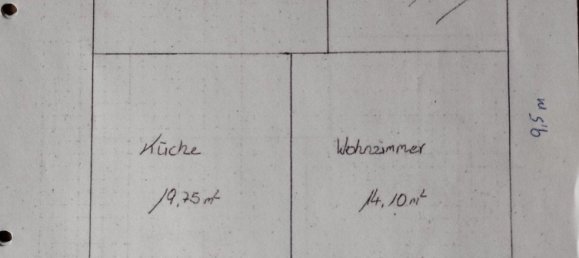 Küche
Wohnzimmer
19,75 m²
14,10 m²
9,5 m